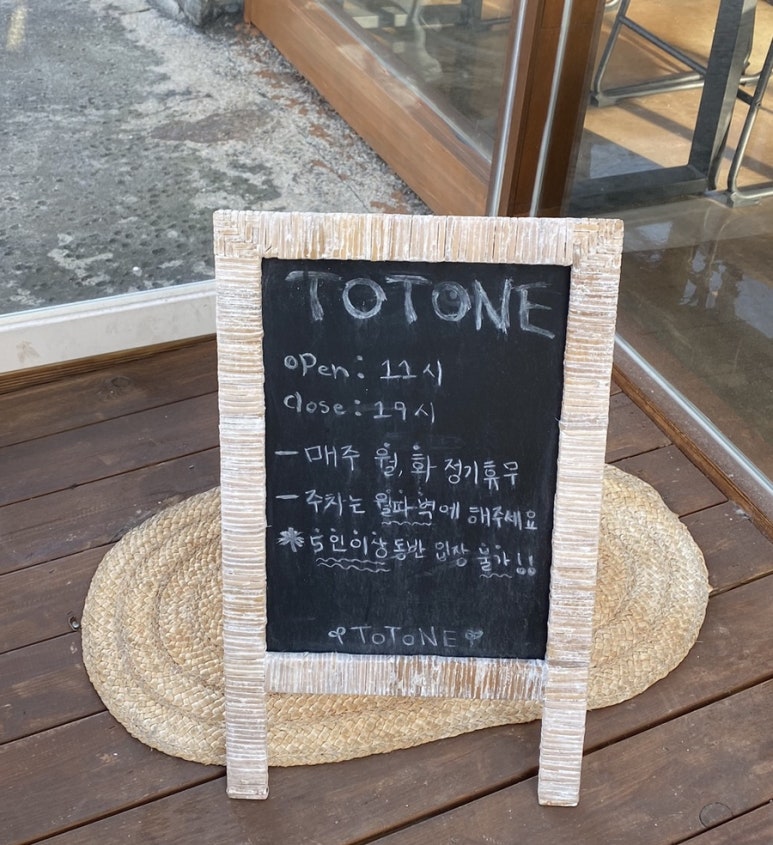 TOTONE
open: 11시
close: 19시
- 매주 월, 화 정기휴무
- 주차는 월파벽에 해주세요
* 5인이상 동반 입장 불가!!
TOTONE